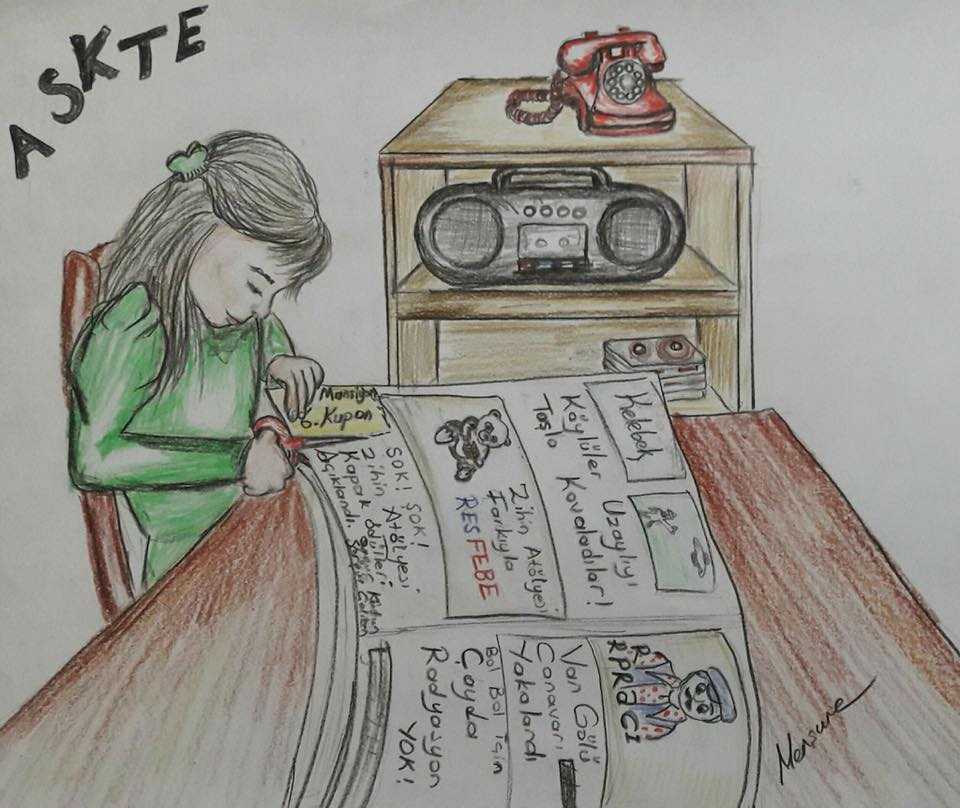 ASKTE
Mansiyon
6. Kupon
Kelebek
Köylüler Uzaylıyı
Taşla Kovaladılar!
Zihin Atölyesi
Farkıyla
RESFEBE
ŞOK! ŞOK!
Zihin Atölyesi
Kapak ödülleri
Açıklandı.
Van Gölü
Canavarı
Yakalandı
Bol Bol için
Çayda
Radyasyon
YOK!
Mensure